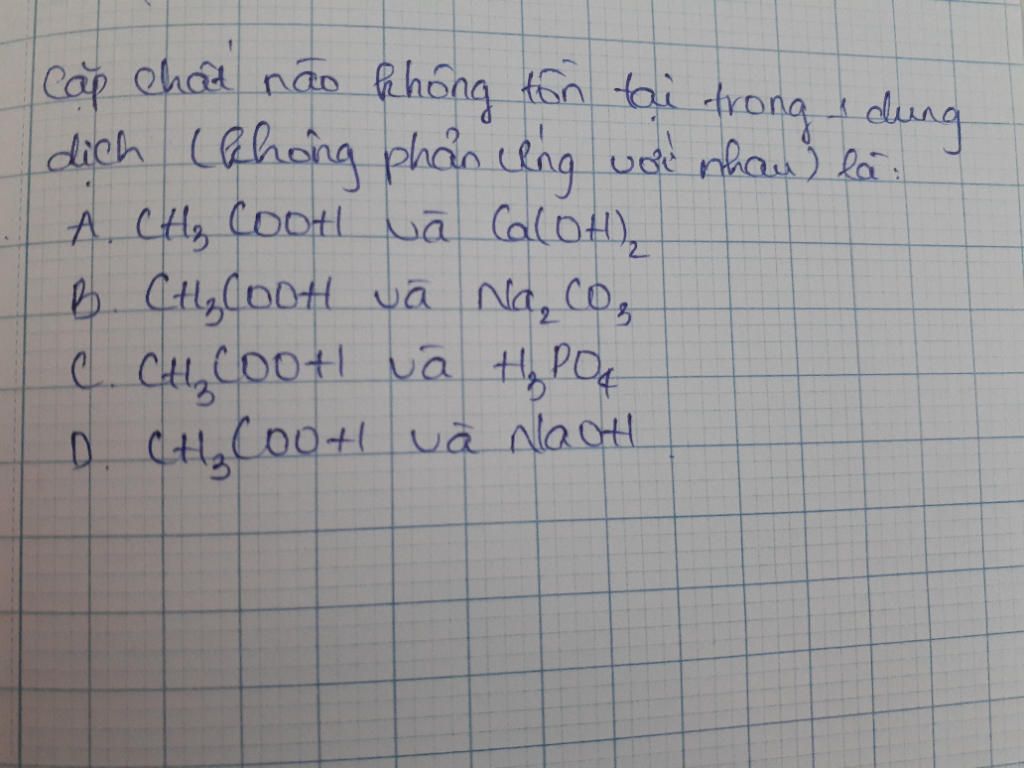 Cặp chất nào không tồn tại trong 1 dung
dịch (không phản ứng với nhau) là:
A. CH₃COOH và Ca(OH)₂
B. CH₃COOH và Na₂CO₃
C. CH₃COOH và H₃PO₄
D. CH₃COOH và NaOH